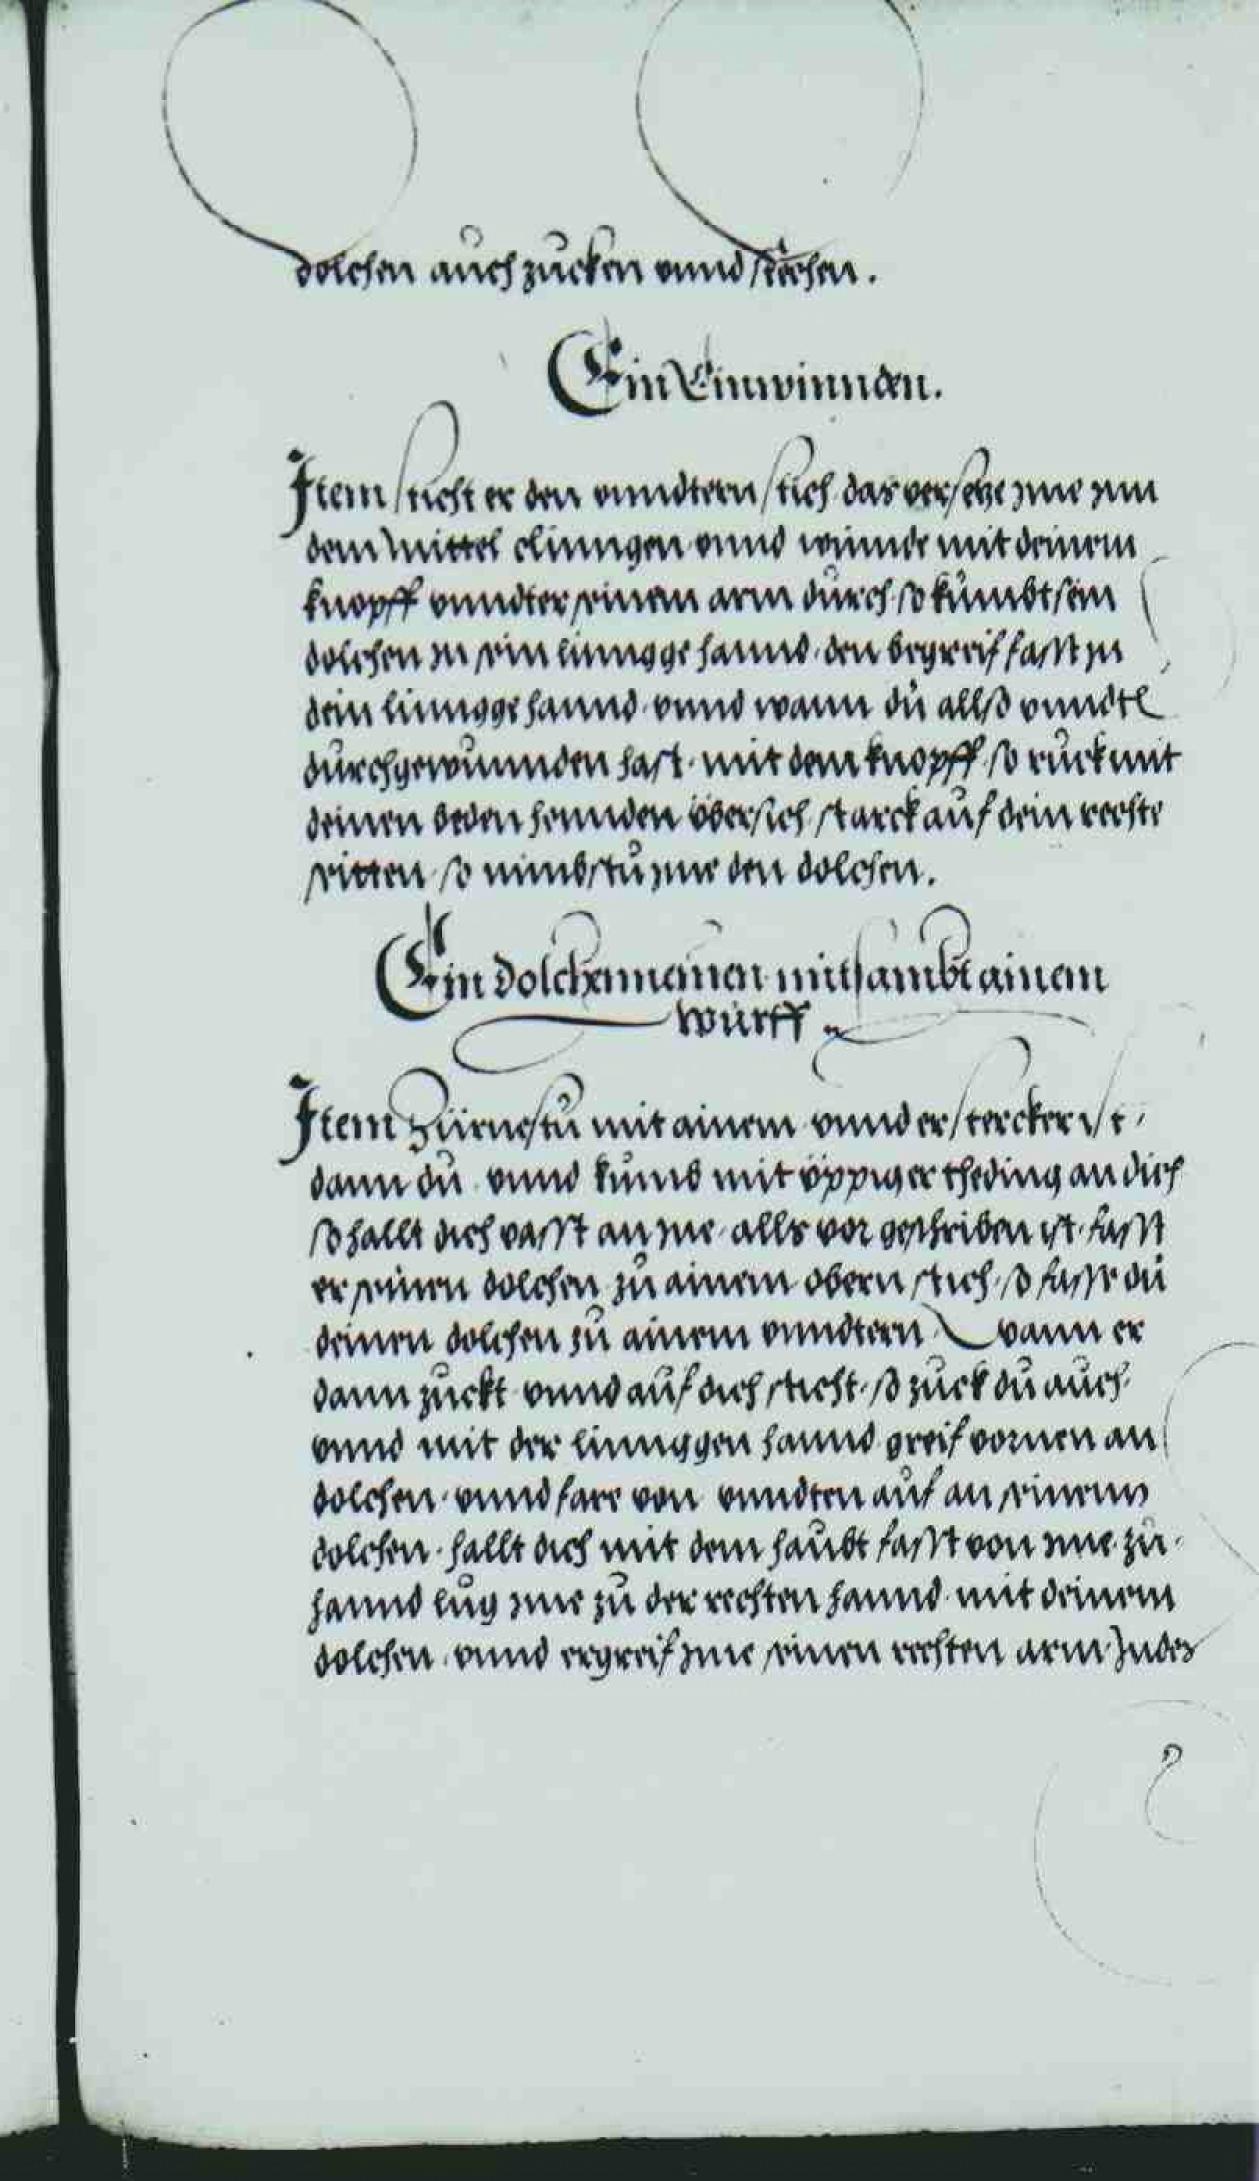 dolchen auch zucken vnnd stechen.
Ein Einwinnden.
Item sticht er den vnndtern stich das verseze ime inn
dem mittel clinngen vnnd winnde mit deinem
knopff vnndter seinem arm durch so kumbt sein
dolchen in sein linngge hannd den begreif fasst in
dein linngge hannd vnnd wann du allso vnndt
durchgewunnden hast mit dem knopff so ruck mit
deinen beden hennden übersich starck auf dein rechte
seitten so nimbstu ime den dolchen.
Ein dolchennemen mitsambt ainem
wurff
Item Zürnestu mit ainem vnnd er stercker ist,
dann du vnnd kumb mit üppiger theding an dich
so hallt dich vasst an ine alls vor geschriben ist fasst
er seinen dolchen zu ainem obern stich so fasse du
deinen dolchen zu ainem vnndtern wann er
dann zuckt vnnd auf dich sticht so zuck du auch
vnnd mit der linnggen hannd greif vornen an
dolchen vnnd fare von vnndten auf an seinenn
dolchen hallt dich mit dem haubt fasst von ime zu
hannd lug ime zu der rechten hannd mit deinem
dolchen vnnd ergreif ime seinen rechten arm Indes